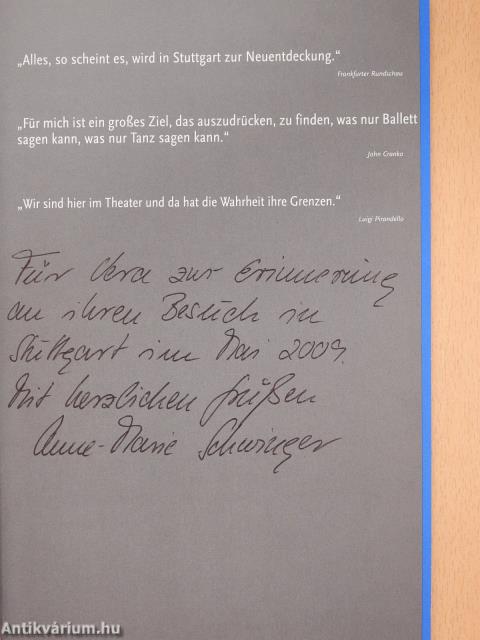 „Alles, so scheint es, wird in Stuttgart zur Neuentdeckung.“
Frankfurter Rundschau
„Für mich ist ein großes Ziel, das auszudrücken, zu finden, was nur Ballett
sagen kann, was nur Tanz sagen kann.“
John Cranko
„Wir sind hier im Theater und da hat die Wahrheit ihre Grenzen.“
Luigi Pirandello
Für Vera zur Erinnerung
an ihren Besuch in
Stuttgart im Mai 2009.
Mit herzlichen Grüßen
Anne-Marie Schwinger
Antikvárium.hu